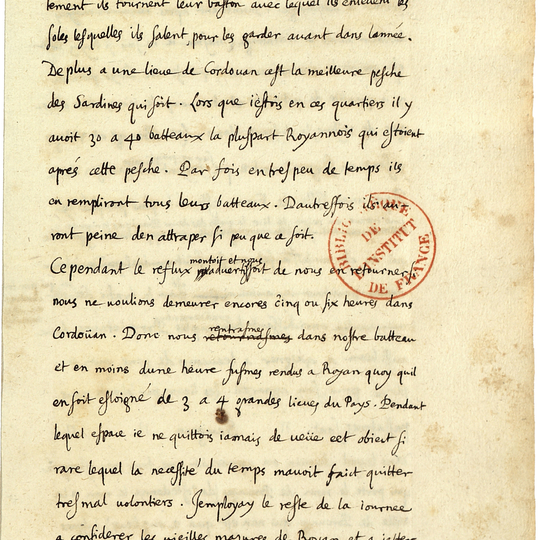 tement ils tournent leur baston avec lequel ils enlevent les
soles lesquelles ils salent, pour les garder auant dans lannée.
De plus a une lieue de Cordouan cest la meilleure pesche
des Sardines qui soit. Lors que iéstois en ces quartiers il y
auoit 30 a 40 batteaux la pluspart Royannois qui estoient
aprés cette pesche. Par fois en tres peu de temps ils
en rempliront tous leurs batteaux. Dautresfois ils au-
ront peine den attraper si peu que ce soit.
montoit et nous
Ce pendant le reflux advertissoit de nous en retourner si
nous ne uoulions demeurer encores cinq ou six heures dans
rentrasmes
Cordoüan. Donc nous retournasmes dans nostre batteau
et en moins dune heure fusmes rendus a Royan quoy quil
en soit esloigné de 3 a 4 grandes lieues du Pays. Pendant
lequel espace ie ne quittois iamais de ueüe cet obiect si
rare lequel la necessité du temps mauoit faict quitter
tres mal uolontiers. Jemployay le reste de la iournee
a considerer les uieilles masures de Royan et a
BIBLIOTHEQUE
DE
L'INSTITUT
DE FRANCE